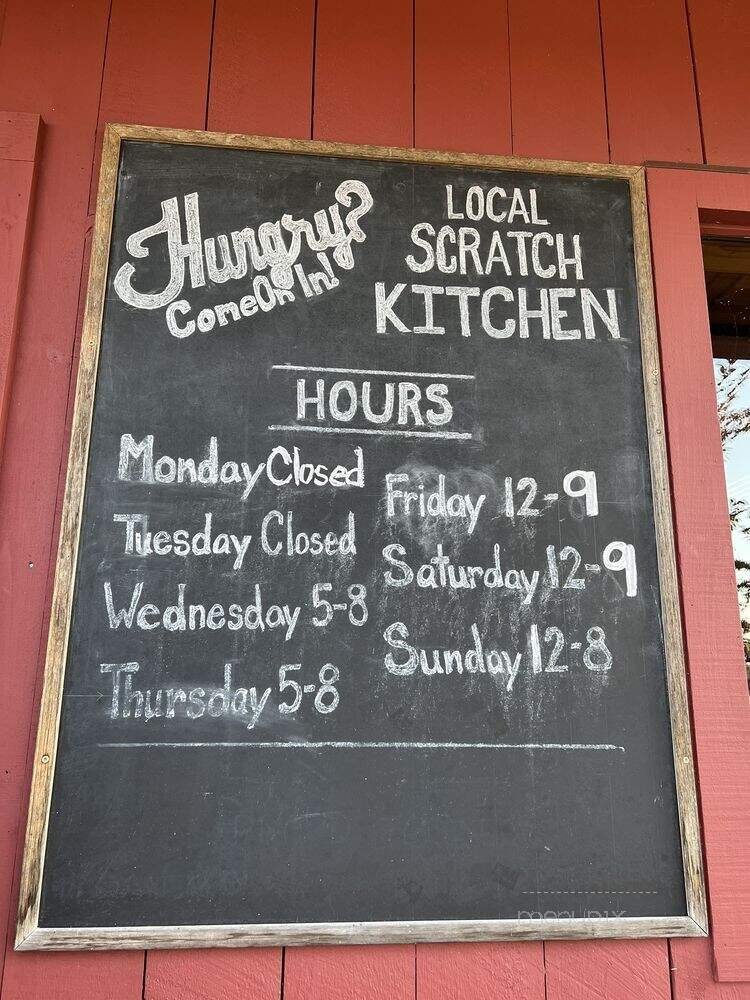 Hungry?
Come On In!
LOCAL
SCRATCH
KITCHEN
HOURS
Monday Closed
Tuesday Closed
Wednesday 5-8
Thursday 5-8
Friday 12-9
Saturday 12-9
Sunday 12-8
menupix